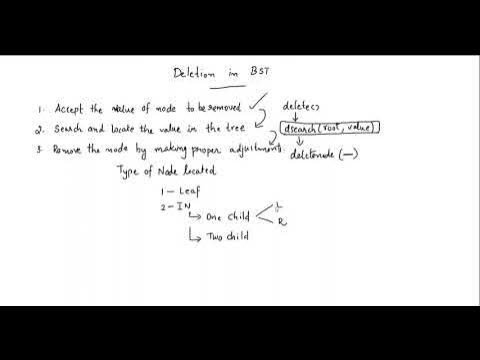 Deletion in BST
1. Accept the value of node to be removed ✓ delete()
2. Search and locate the value in the tree dsearch(root, value)
3. Remove the node by making proper adjustments. deletenode(—)
Type of Node located
1 - Leaf
2 - IN
One child L
R
Two child